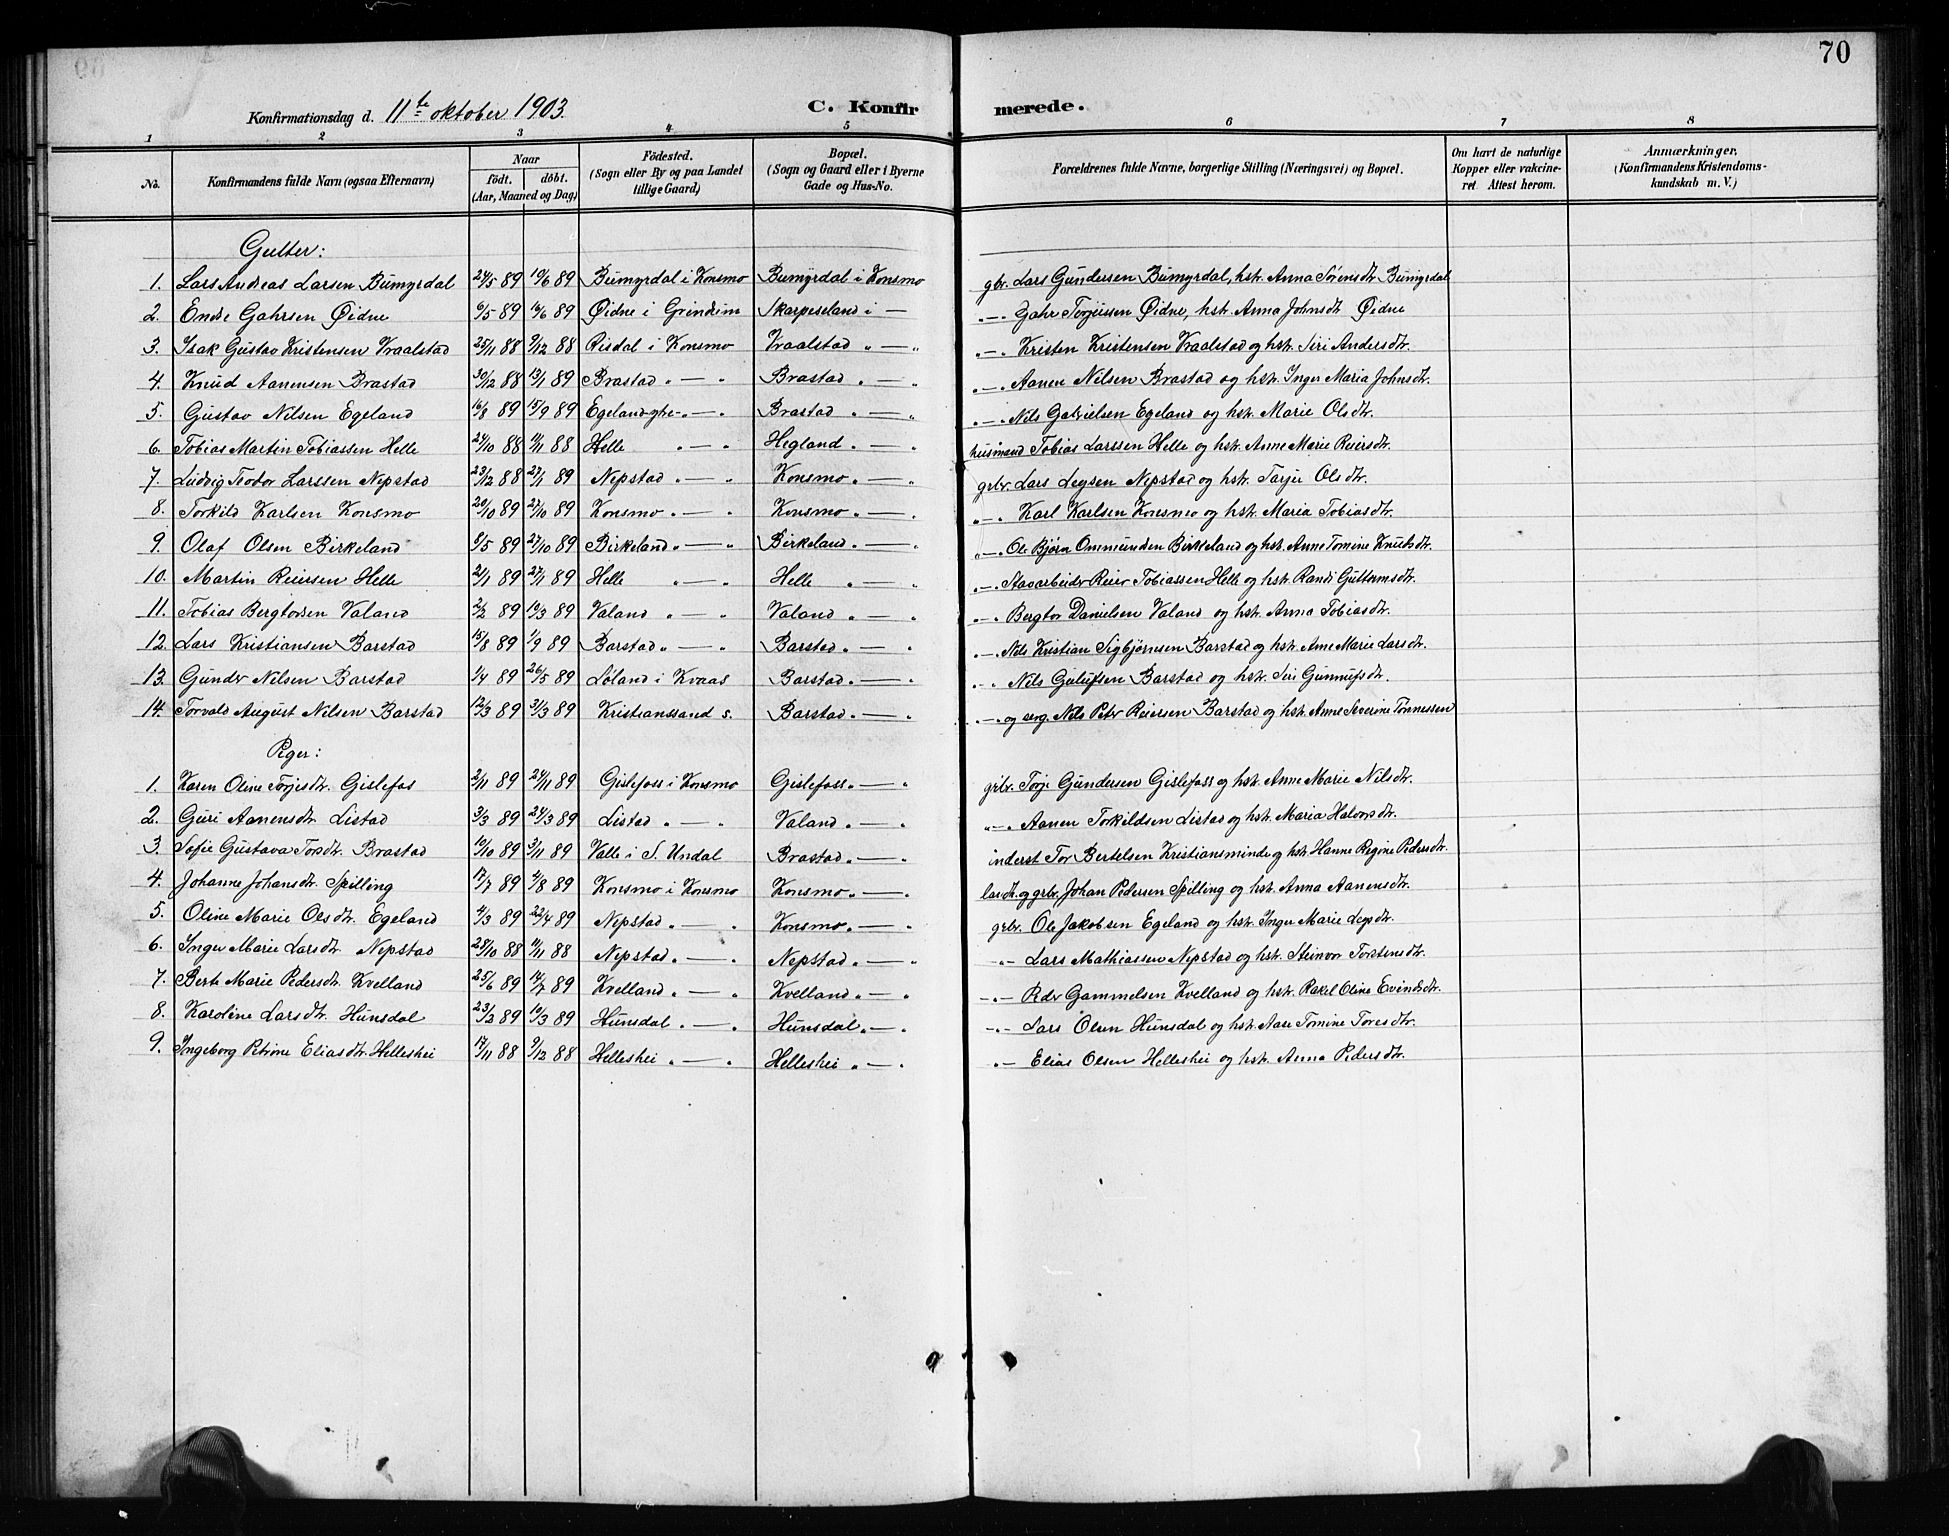 70
Konfirmationsdag d. 11te oktober 1903. C. Konfirmerede.
1 2 3 4 5 6 7 8
No. Konfirmandens fulde Navn (ogsaa Efternavn) Naar födt. döbt. (Aar, Maaned og Dag) Födested. (Sogn eller By og paa Landet tillige Gaard) Bopæl. (Sogn og Gaard eller i Byerne Gade og Hus-No. Forældrenes fulde Navne, borgerlige Stilling (Næringsvei) og Bopæl. Om havt de naturlige Kopper eller vakcineret Attest herom. Anmærkninger. (Konfirmandens Kristendomskundskab m. V.)
Gutter:
1. Lars Andreas Larsen Bumyrdal 24/5 89 10/6 89 Bumyrdal i Konsmo Bumyrdal i Konsmo gbr. Lars Gundersen Bumyrdal, hstr. Anna Sørensdtr Bumyrdal
2. Endre Gahrsen Øidne 6/5 89 10/6 89 Øidne i Grindum Skarpeseland i — „ — „ Gahr Torjussen Øidne, hstr. Anna Johnsdtr Øidne
3. Isak Gustav Kristensen Vraalstad 25/11 88 9/12 88 Risdal i Konsmo Vraalstad „ — „ „ — „ Kristen Kristensen Vraalstad og hstr. Siri Andersdtr.
4. Knud Aanensen Brastad 30/12 88 13/1 89 Brastad „ — „ Brastad „ — „ „ — „ Aanen Nilsen Brastad og hstr. Inger Maria Johnsdtr.
5. Gustav Nilsen Egeland 16/8 89 15/9 89 Egeland „ — „ Brastad „ — „ „ — „ Nils Gabrielsen Egeland og hstr. Marie Olsdtr.
6. Tobias Martin Tobiassen Helle 24/10 88 11/11 88 Helle „ — „ Hegland „ — „ husmand Tobias Larssen Helle og hstr. Anne Marie Reiersdtr.
7. Ludvig Teodor Larssen Nepstad 23/12 88 27/1 89 Nepstad „ — „ Konsmo „ — „ grbr. Lars Legsen Nepstad og hstr. Tarjer Olsdtr.
8. Torkild Karlsen Konsmo 20/10 89 27/10 89 Konsmo „ — „ Konsmo „ — „ „ — „ Karl Karlsen Konsmo og hstr. Maria Tobiasdtr.
9. Olaf Olsen Birkeland 9/5 89 27/10 89 Birkeland „ — „ Birkeland „ — „ „ — „ Ole Bjørn Ommundsen Birkeland og hstr. Anne Tomine Knutsdtr.
10. Martin Reiersen Helle 2/1 89 27/1 89 Helle „ — „ Helle „ — „ „ — „ Stavarbeider Reier Tobiassen Helle og hstr. Randi Guttormsdtr.
11. Tobias Bergtorsen Valand 2/2 89 10/3 89 Valand „ — „ Valand „ — „ „ — „ Bergtor Danielsen Valand og hstr. Anna Tobiasdtr.
12. Lars Kristiansen Barstad 15/8 89 1/9 89 Barstad „ — „ Barstad „ — „ „ — „ Nils Kristian Sigbjørnsen Barstad og hstr. Anne Marie Larsdtr.
13. Gunder Nilsen Barstad 1/4 89 26/5 89 Løland i Kvaas Barstad „ — „ „ — „ Nils Gulufsen Barstad og hstr. Siri Gunnufsdtr.
14. Torvald August Nilsen Barstad 12/3 89 31/3 89 Kristianssand s. Barstad „ — „ „ — „ og serg. Nils Peter Reiersen Barstad og hstr. Anne Severine Tønnessen
Piger:
1. Karen Oline Torjesdtr. Gislefos 2/11 89 24/11 89 Gislefoss i Konsmo Gislefoss „ — „ grbr. Torje Gundersen Gislefoss og hstr. Anne Marie Nilsdtr.
2. Guri Aanensdtr. Listad 3/3 89 24/3 89 Listad „ — „ Valand „ — „ „ — „ Aanen Torkildsen Listad og hstr. Maria Halvorsdtr.
3. Sofie Gustava Torsdtr. Brastad 10/10 89 3/11 89 Valle i S. Undal Brastad „ — „ inderst Tor Bertelsen Kristiansminde og hstr. Hanne Regine Pedersdtr.
4. Johanne Johansdtr. Spilling 17/7 89 4/8 89 Konsmo i Konsmo Konsmo „ — „ og grbr. Johan Pedersen Spilling og hstr. Anna Aanensdtr.
5. Oline Marie Olsdtr. Egeland 4/3 89 22/4 89 Nepstad „ — „ Konsmo „ — „ grbr. Ole Jakobsen Egeland og hstr. Inger Marie
6. Inger Marie Larsdtr. Nepstad 28/10 88 11/11 88 Nepstad „ — „ Nepstad „ — „ „ — Lars Mathiassen Nepstad og hstr. Steinvor Torstensdtr.
7. Berte Marie Pedersdtr. Kvelland 25/6 89 14/7 89 Kvelland „ — „ Kvelland „ — „ — „ — Peder Gammelsen Kvelland og hstr. Rakel Oline Evindsdtr.
8. Karoline Larsdtr. Hunsdal 23/2 89 10/3 89 Hunsdal „ — „ Hunsdal „ — „ — „ — Lars Olsen Hunsdal og hstr. Aase Tomine Toresdtr.
9. Ingeborg Petrine Eliasdtr. Helleshei 17/11 88 9/12 88 Helleshei „ — „ Helleshei „ — „ „ — Elias Olsen Helleshei og hstr. Anna Pedersdtr.